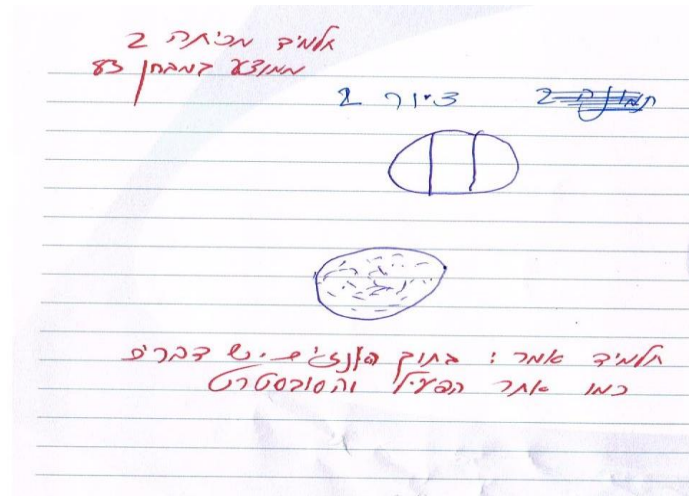 תלמיד מכיתה 2
ממוצע במבחן 58
ציור 2
תלמיד אמר: בתוך האנזים יש דברים
כמו אתר הפעיל והסובסטרט